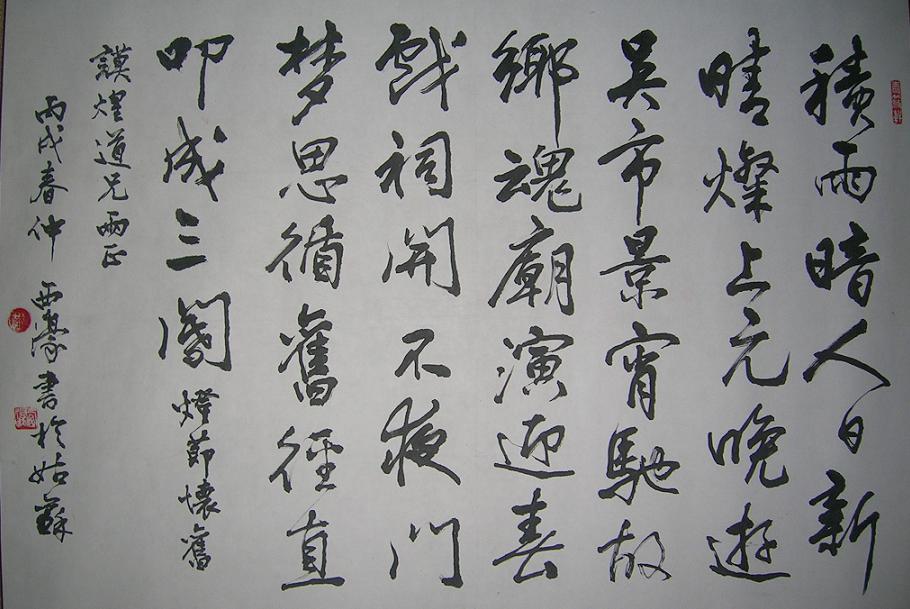 積雨暗人日新
晴燦上元晚遊
吳市景宵馳故
鄉魂廟演迎春
戲祠開不夜門
梦思循舊徑直
叩成三閽 燈節懷舊
謨煌道兄正
丙戌春仲 西濠書於姑蘇